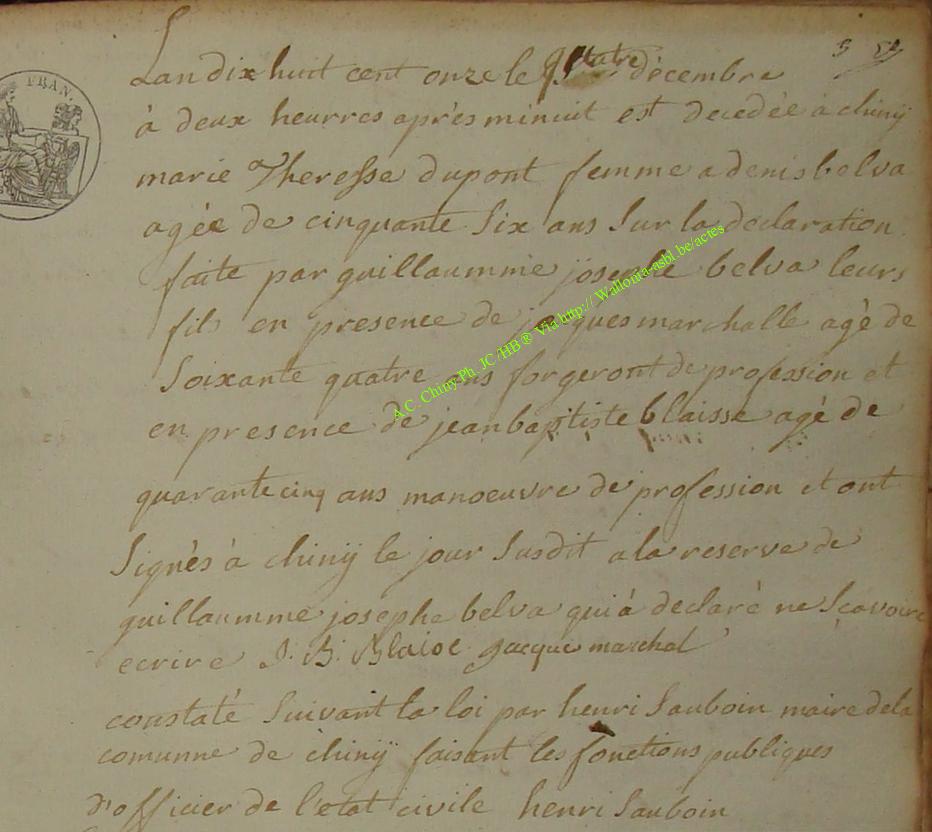 5
FRAN.
Lan dix huit cent onze le quatre décembre
à deux heurres après minuit est decedée à chinÿ
marie Theresse dupont femme a denis belva
agée de cinquante six ans sur la déclaration
faite par guillaumme josephe belva leurs
fils en presence de jacques marchalle agé de
soixante quatre ans forgeront de profession et
en presence de jean baptiste blaisse agé de
quarante cinq ans manoeuvre de profession et ont
signés à chinÿ le jour susdit a la reserve de
guillaumme josephe belva qui à declaré ne scavoire
ecrire J. B. Blaise Jacque marchal
constaté suivant la loi par henri sauboin maire de la
comunne de chinÿ faisant les fonctions publiques
d'officier de l'état civile henri sauboin
A.C. Chiny Ph. JC /HB ® Via http:// Wallonia-asbl.be/actes